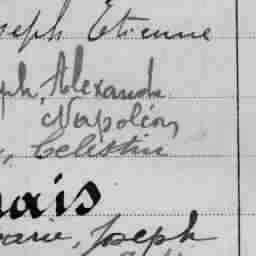 seph Etienne
ph, Alexandre
Napoléon
, Célestin
nais
arie, Joseph